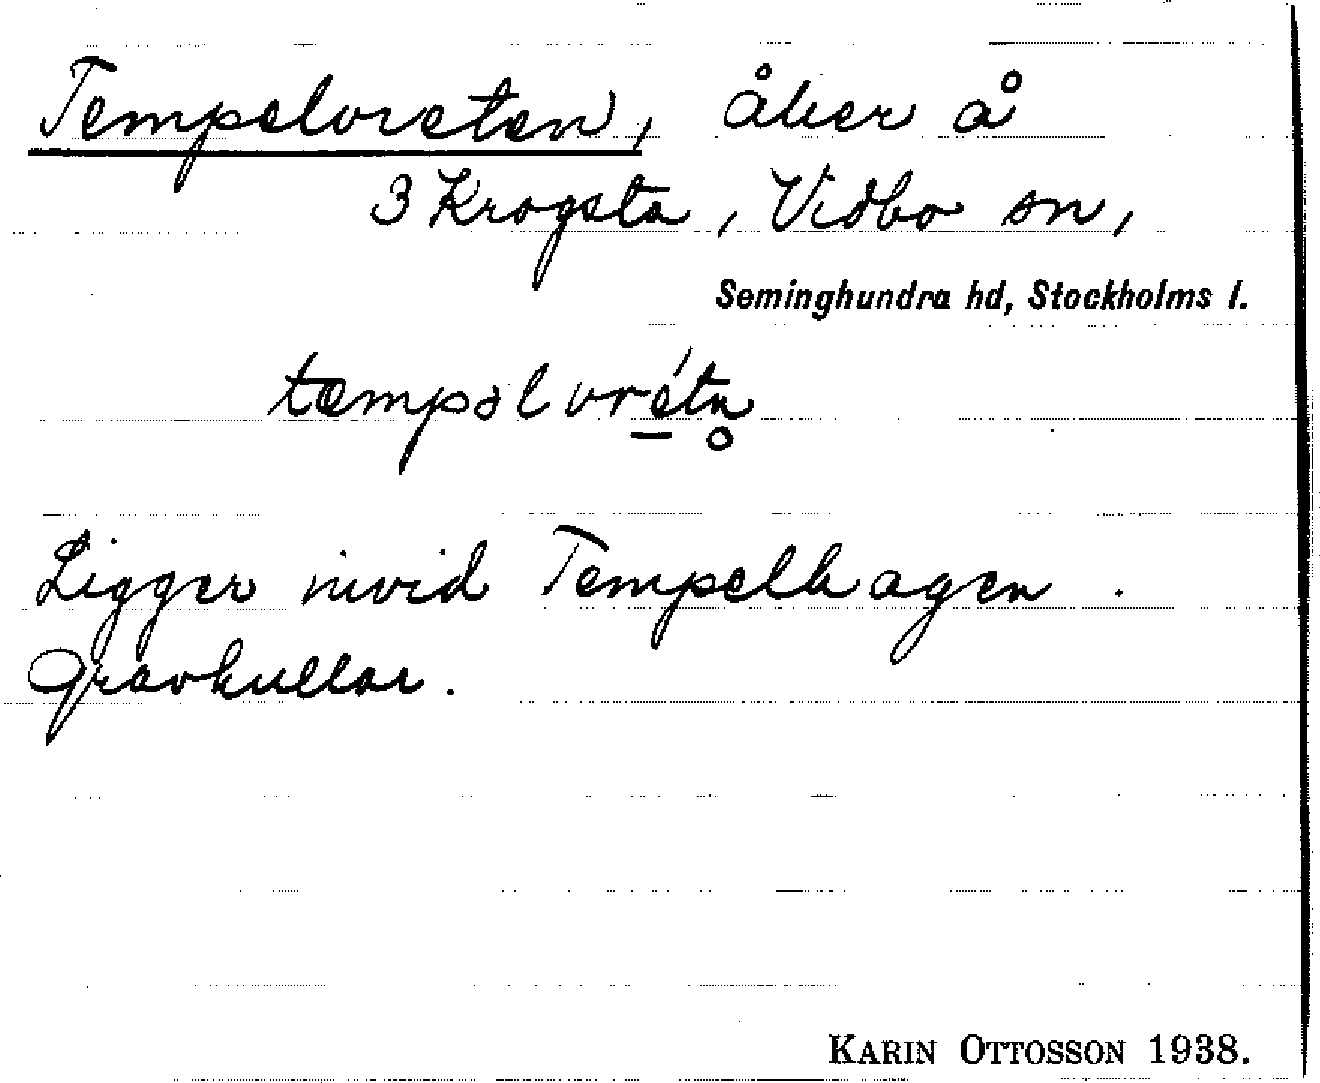 Tempelvreten, åker å
3 Krogsta, Vidbo sn,
Seminghundra hd, Stockholms l.
tæmpəlvrétn̥
Ligger invid Tempelhagen.
Gravkullar.
KARIN OTTOSSON 1938.